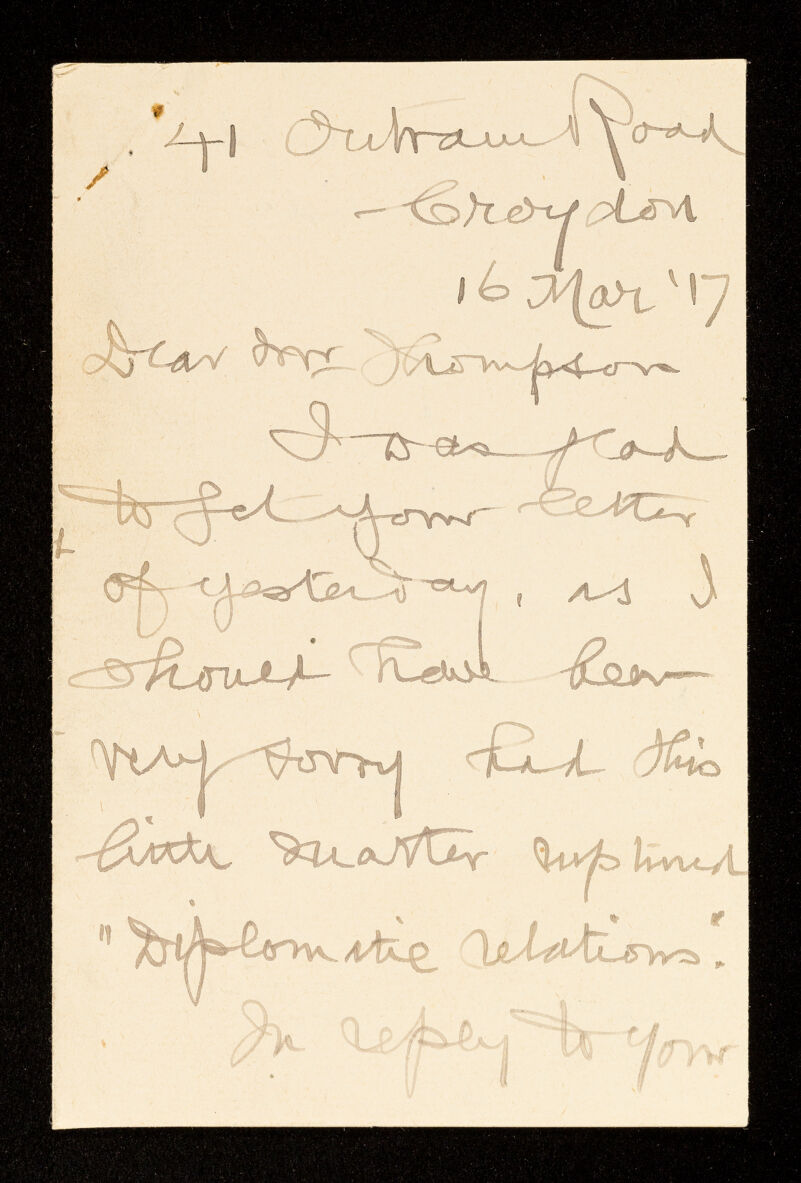 41 Outram Road
Croydon
16 Mar '17
Dear Mr Thompson
I was glad
to get your letter
of yesterday, as I
should have been
very sorry had this
little matter ruptured
"Diplomatic relations".
In reply to your